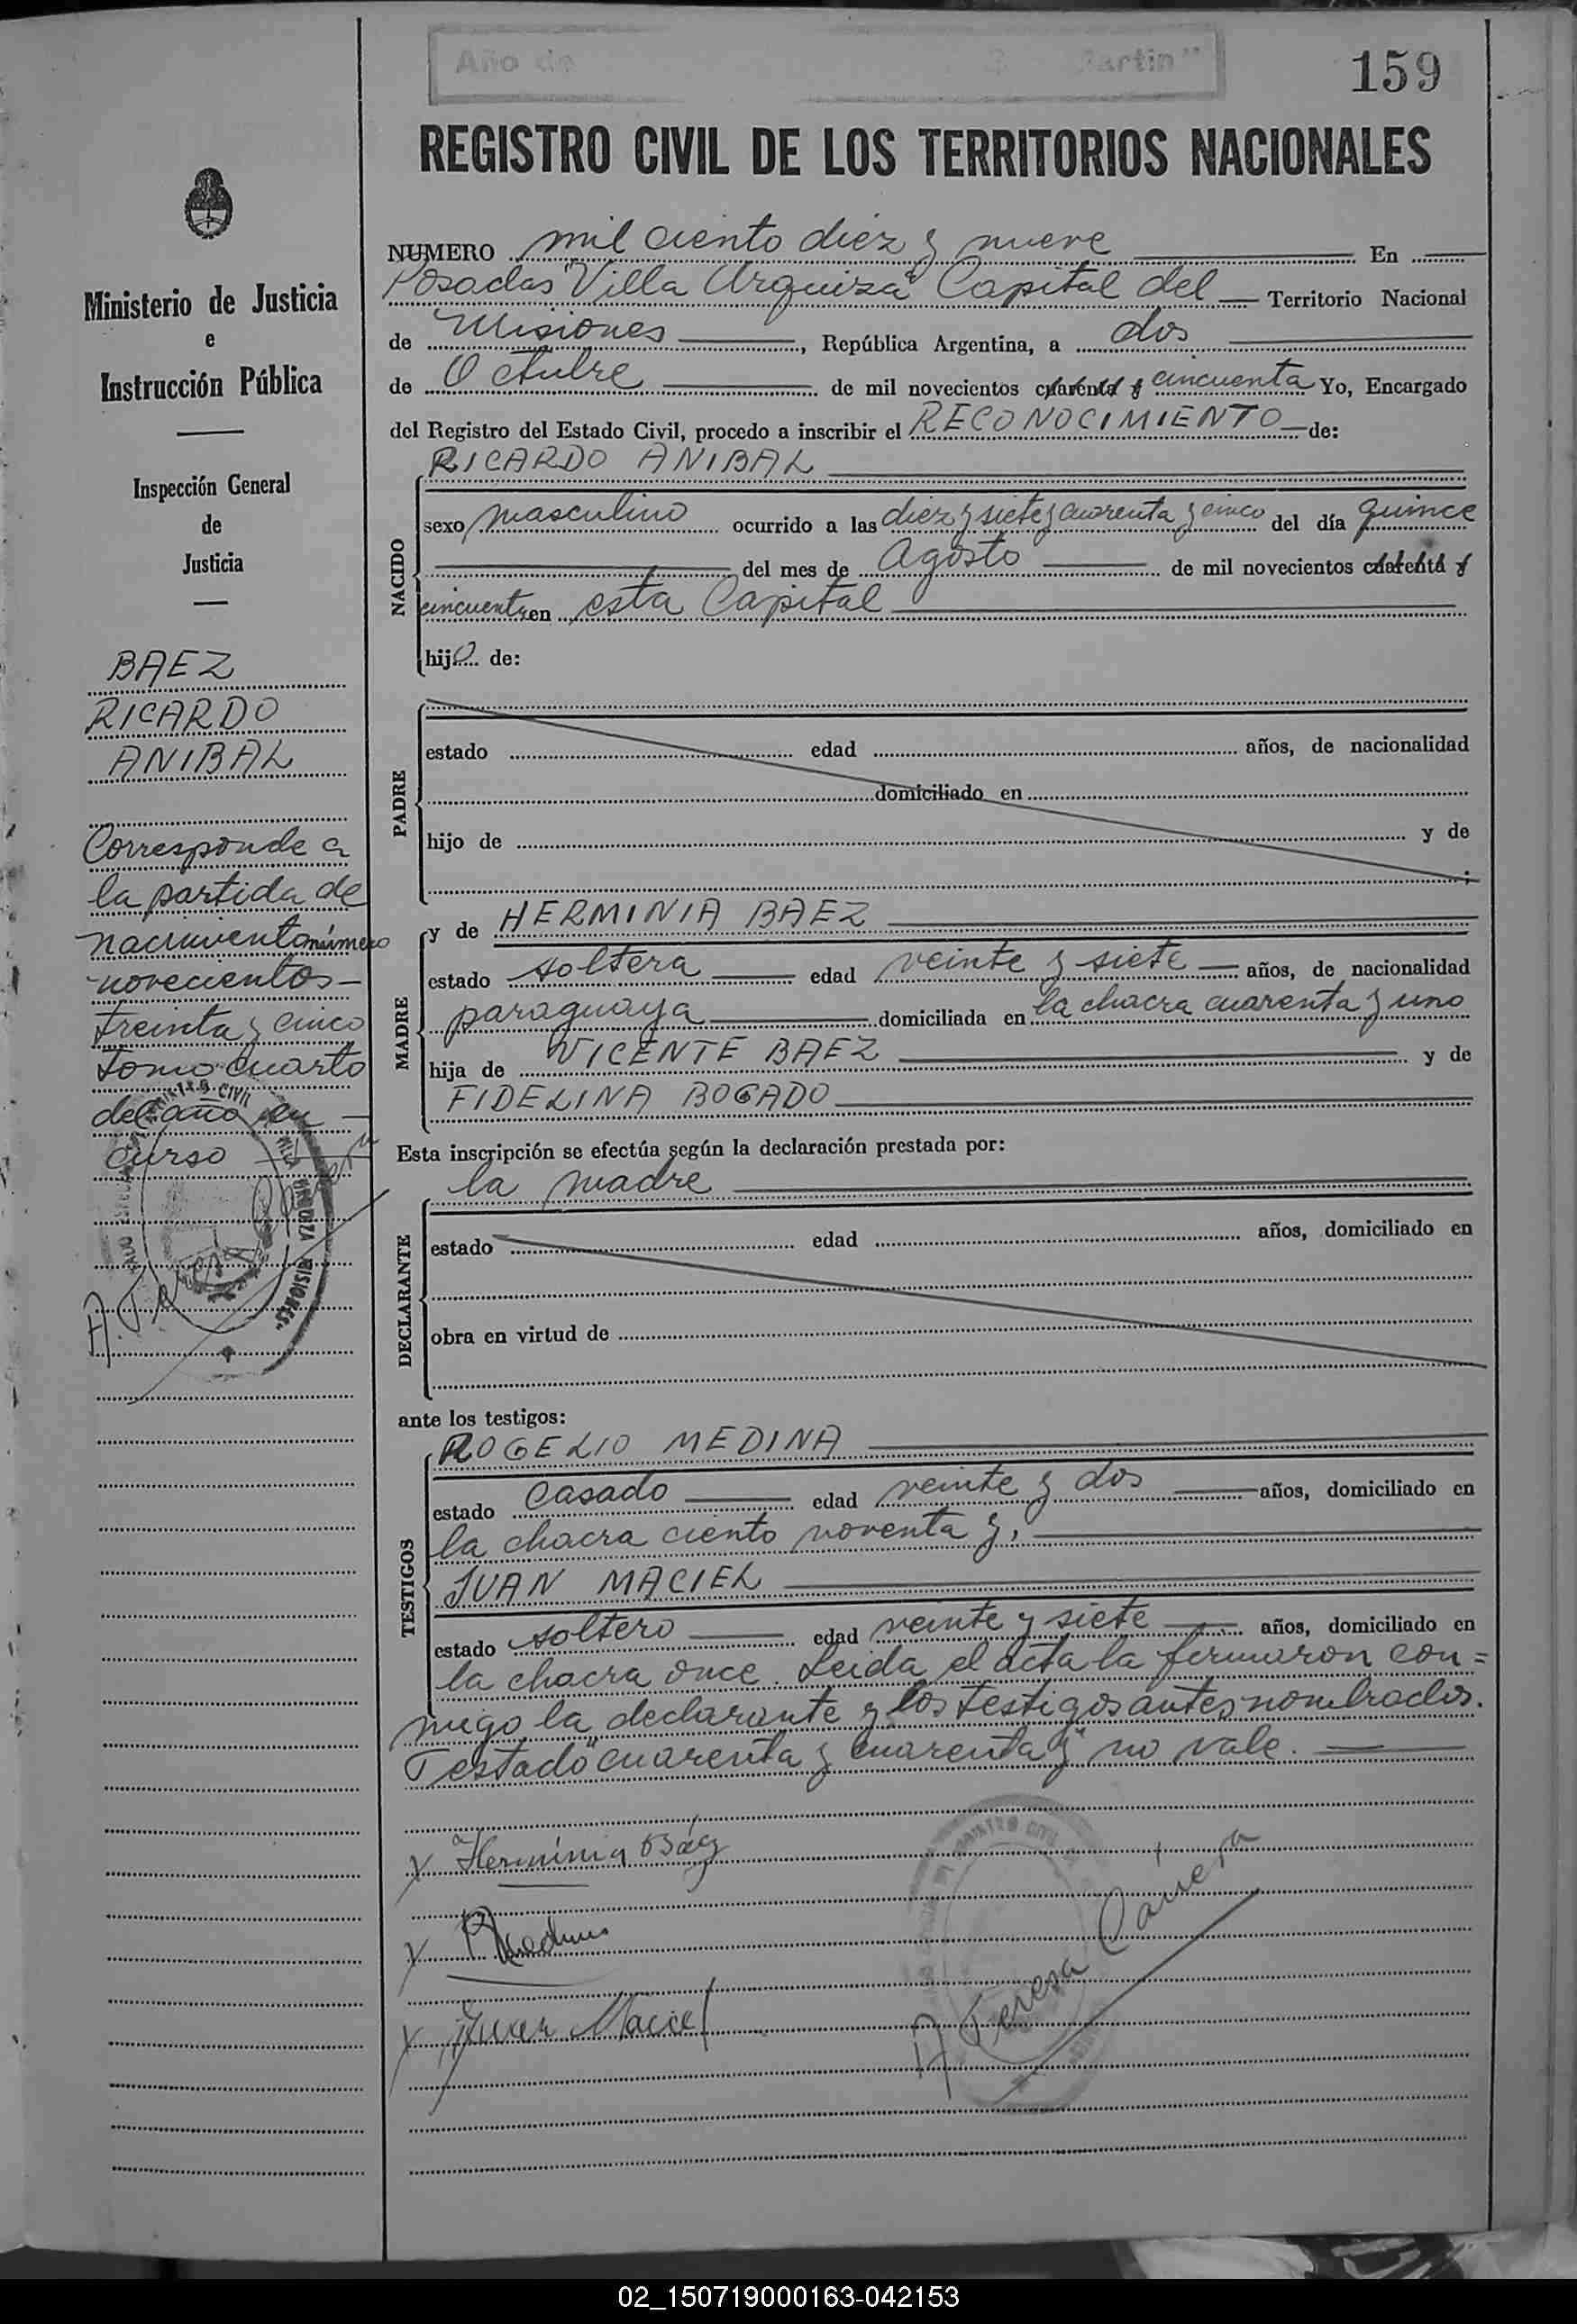 Año de
artin"
159
REGISTRO CIVIL DE LOS TERRITORIOS NACIONALES
Ministerio de Justicia
e
Instrucción Pública
Inspección General
de
Justicia
BAEZ
RICARDO
ANIBAL
Corresponde a
la partida de
nacimiento número
novecientos
treinta y cinco
tomo cuarto
del año en
curso
NUMERO mil ciento diez y nueve En
Posadas "Villa Urquiza" Capital del Territorio Nacional
de Misiones, República Argentina, a dos
de Octubre de mil novecientos cuarenta y cincuenta Yo, Encargado
del Registro del Estado Civil, procedo a inscribir el RECONOCIMIENTO de:
NACIDO
RICARDO ANIBAL
sexo masculino ocurrido a las diez y siete y cuarenta y cinco del día quince
del mes de Agosto de mil novecientos cuarenta y
cincuenta en esta Capital
hijo de:
PADRE
estado edad años, de nacionalidad
domiciliado en
hijo de y de
;
MADRE
y de HERMINIA BAEZ
estado soltera edad veinte y siete años, de nacionalidad
paraguaya domiciliada en la chacra cuarenta y uno
hija de VICENTE BAEZ y de
FIDELINA BOGADO
Esta inscripción se efectúa según la declaración prestada por:
la madre
DECLARANTE
estado edad años, domiciliado en
obra en virtud de
ante los testigos:
TESTIGOS
ROGELIO MEDINA
estado casado edad veinte y dos años, domiciliado en
la chacra ciento noventa y,
JUAN MACIEL
estado soltero edad veinte y siete años, domiciliado en
la chacra once. Leida el acta la firmaron con=
migo la declarante y los testigos antes nombrados.
Testado "cuarenta y cuarenta y" no vale.
x Herminia Báez
x R Medina
x Juan Maciel
A Teresa Carrera
02_150719000163-042153